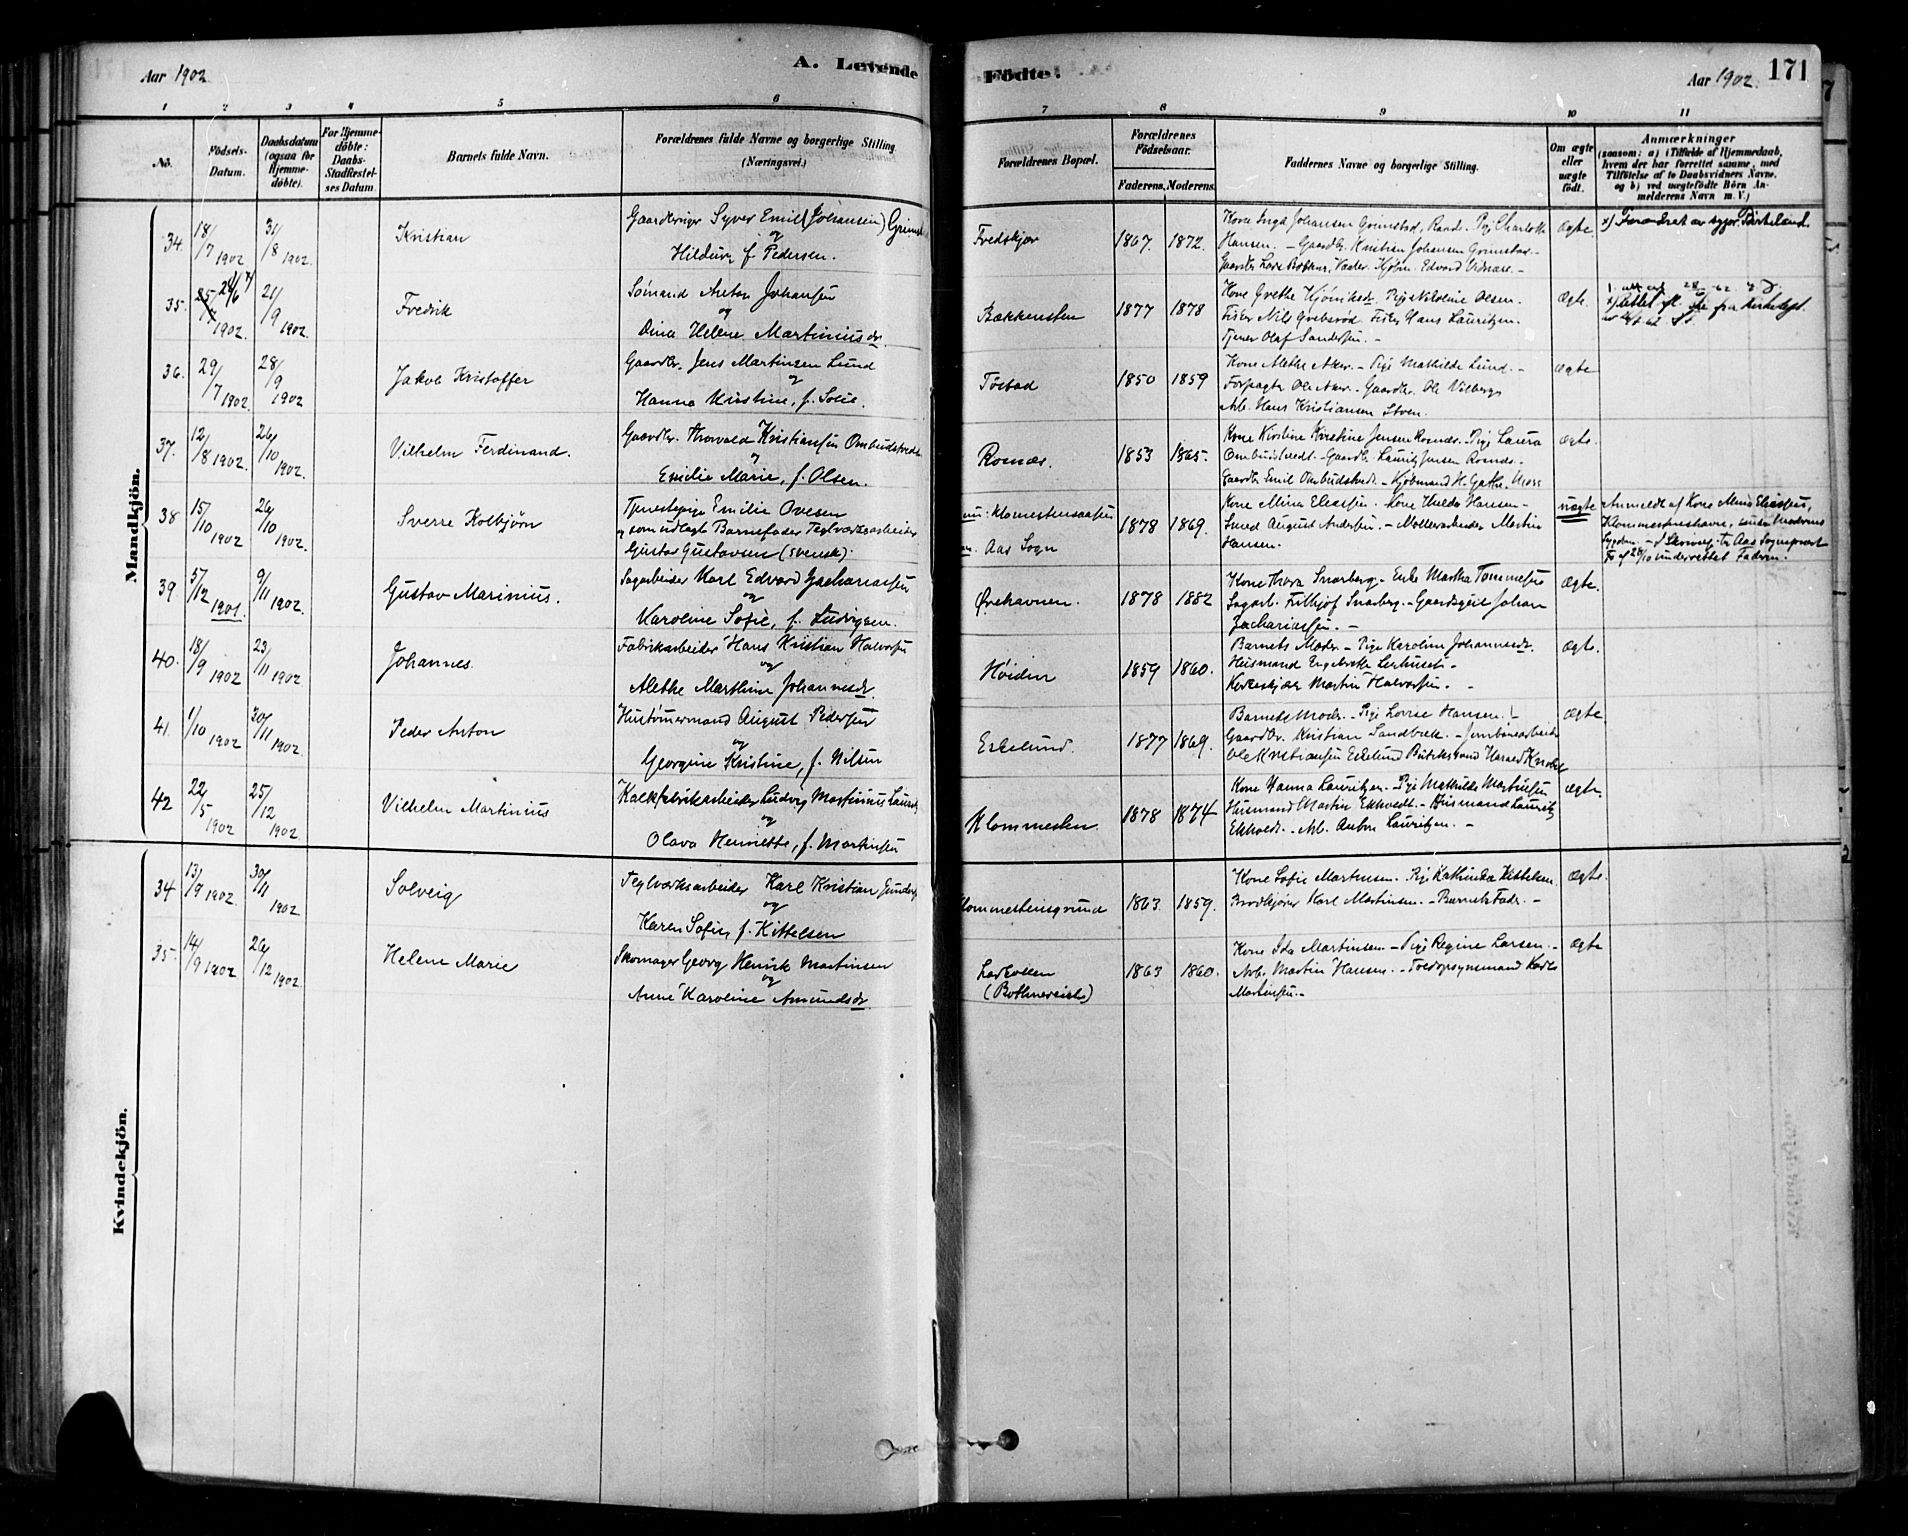 Aar 1902
A. Levende
Födte.
Aar 1902.
171
1
2
3
4
5
6
7
8
9
10
11
No.
Födsels-
Datum.
Daabsdatum
(ogsaa for
Hjemme-
döbte).
For Hjemme-
döbte:
Daabs-
Stadfæstel-
ses Datum.
Barnets fulde Navn.
Forældrenes fulde Navne og borgerlige Stilling
(Næringsvei.)
Forældrenes Bopæl.
Forældrenes
Födselsaar.
Faderens. Moderens.
Faddernes Navne og borgerlige Stilling.
Om ægte
eller
uægte
födt.
Anmærkninger
(saasom: a) i Tilfælde af Hjemmedaab,
hvem der har forrettet samme, med
Tilföielse af to Daabsvidners Navne,
og b) ved uægtefödte Börn An-
melderens Navn m. V.)
Mandkjön.
34 18/7 1902 31/8 1902. Kristian
Gaardbruger Syver Emil (Johansen)
og
Hildur, f. Pedersen.
Fredskjær 1867 1872.
Kone Inga Johansen Grimstad, Pige Charlotte
Hansen. - Gaardb. Kristian Johansen Grimstad. -
Ægte.
35. 1902 21/9 1902 Fredrik
Sömand Anton Johansen
og
Dina Helene Martiniusdr.
Bækkensten 1877 1878
Kone Grethe
Pige Nikoline Olsen.
Fisker Nils Grebsrød. Fisker Hans Lauritzen.
Tjener Olaf Sandersen. -
Ægte.
36. 29/7 1902. 28/9 1902 Jakob Kristoffer
Gaardbr. Jens Martinsen Lund
og
Hanna Kristine, f. Solie.
Tøstad 1850 1859
Kone Alethe Aker. - Pige Mathilde Lund. -
Forpagter Ole Aker. - Gaardbr. Ole Vilberg
Arb. Hans Kristiansen Støen.
Ægte
37. 12/8 1902. 26/10 1902. Vilhelm Ferdinand.
Gaardbr. Thorvald Kristiansen Ombudstvedt
og
Emilie Marie, f. Olsen.
Ramnæs. 1853 1865.
Kone Kirstine Kristine Jensen Ramnæs. - Pige Laura
Ombudstvedt. - Gaardb. Lauritz Jensen Ramnæs. -
Gaardbr. Emil Ombudstvedt. - Kjöbmand H. Gathe. Moss
Ægte.
38 15/10 1902 26/10 1902. Sverre Kolbjørn
Tjenestepige Emilie Ovesen
og som udlagt Barnefader Teglværksarbeider
Gustav Gustavsen (svensk).
Aas Sogn 1878 1869.
Kone Mina Eliassen. Kone Hulda Hansen -
Smed August Andersen. - Møllerarbeider Martin
Hansen.
uægte
Anmeldt af Kone Mina Eliassen,
underrettet Faderen.
39 5/12 1901. 9/11 1902. Gustav Marinius.
Sagarbeider Karl Edvard Zachariassen
og
Karoline Sofie, f. Ludvigsen.
Ørehavnen. 1878 1882
Kone Thora Snarberg. - Enke Martha Tommesen
Sagarb. Frithjof Snarberg. - Johan
Zachariassen. -
Ægte.
40. 18/9 1902 23/11 1902. Johannes.
Fabrikarbeider Hans Kristian Halvorsen
og
Alethe Marthine Johannesdr.
Høiden 1859 1860.
Barnets Moder. - Pige Karoline Johannesdr.
Husmand Engebrethe Lerhuset. -
Martin Halvorsen. -
Ægte.
41. 1/10 1902 30/11 1902. Peder Anton
Hustømermand August Pedersen
og
Georgine Kristine, f. Nilsen
Eskelund. 1877 1869.
Barnets Moder. - Pige Lovise Hansen. -
Gaardbr. Kristian Sandbæk. - Jernbanearbeider
Ole Kristiansen Eskelund
Ægte
42 22/5 1902 25/12 1902 Vilhelm Martinius
Kalkfabrikarbeider Ludvig Martinius
og
Olava Henriette, f. Martinsen
Klommesten. 1878 1874
Kone Hanna Lauritzen. - Pige Mathilde Martinsen
Husmand Martin Ekholdt. - Husmand Lauritz
Ekholdt. - Arb. Anton Lauritzen. -
Ægte.
Kvindekjön.
34 13/9 1902. 30/11 1902 Solveig
Teglværksarbeider Karl Kristian
og
Karen Sofie, f. Kittelsen
Klommestensgrund 1863. 1859.
Kone Sofie Martinsen. Pige Kathinka Kittelsen.
Brødkjører Karl Martinsen. - Barnets Fader. -
Ægte.
35. 14/9 1902 26/12 1902 Helene Marie
Skomager Georg Henrik Martinsen
og
Anne Karoline Amundsdr
Larkollen
1863 1860.
Kone Ida Martinsen - Pige Regine Larsen. -
Arb. Martin Hansen. - Karl
Martinsen. -
Ægte